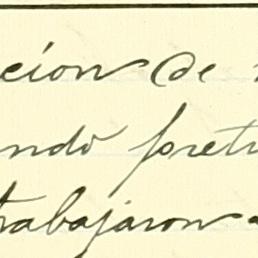 cion de
ndo pretu
trabajaron